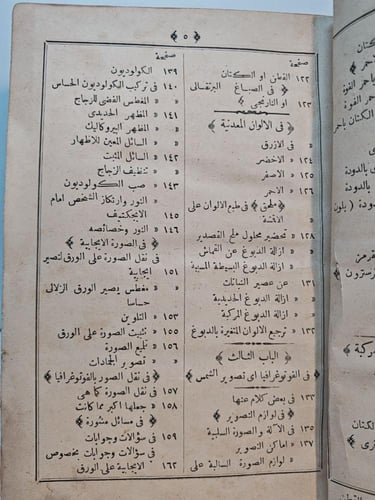 ﴿ ٥ ﴾
صحيفة
١٢٢ القطن او الكتان
« فى الصباغ البرتقالى
١٢٣ او النارنجى
﴿ فى الالوان المعدنية ﴾
« فى الازرق
١٢٤ « الاخضر
« « الاصفر
١٢٦ « الاحمر
« ﴿ ملحق ﴾ فى طبع الالوان على
الاقمشة
١٢٨ « تحضير محلول ملح القصدير
« ازالة الدبوغ عن القماش
« ازالة الدبوغ البسيطة المسببة
١٣١ عن عصير النباتات
« ازالة الدبوغ الحديدية
« ازالة الدبوغ المركبة
١٣٢ « ترجيع الالوان المتغيرة بالدبوغ
﴿ الباب الثالث ﴾
﴿ فى الفوتوغرافيا اى تصوير الشمس ﴾
١٣٣ فى بعض كلام عنها
﴿ فى لوازم التصوير ﴾
« فى الآلة و الصورة السلبية
١٣٧ « اماكن التصوير
« « لوازم الصورة السالبة على
صحيفة
١٣٩ الكولوديون
١٤٠ فى تركيب الكولوديون الحساس
« المغطس الفضى للزجاج
١٤١ المظهر الحديدى
« المظهر البيروكاليك
« السائل المعين للاظهار
١٤٢ « السائل المثبت
« تنظيف الزجاج
١٤٣ « صب الكولوديون
« النور وارتكاز الشخص امام
١٤٥ الابجكتيف
١٤٦ « النور وخصائصه
﴿ فى الصورة الايجابية ﴾
« فى نقل الصورة على الورق لتصير
١٥١ ايجابية
« « مغطس يصير الورق الزلالى
حساسا
١٥٣ « التلوين
« « تثبيت الصورة على الورق
١٥٦ « تلميع الصورة
« « تصوير الجمادات
﴿ فى نقل الصور بالفوتوغرافيا ﴾
١٥٧ فى نقل الصورة كما هى
١٥٨ « جعلها اكبر مما كانت
﴿ فى مسائل منثورة ﴾
١٥٩ فى سؤالات وجوابات
« فى سؤالات وجوابات بخصوص
١٦٢ الايجابية على الورق